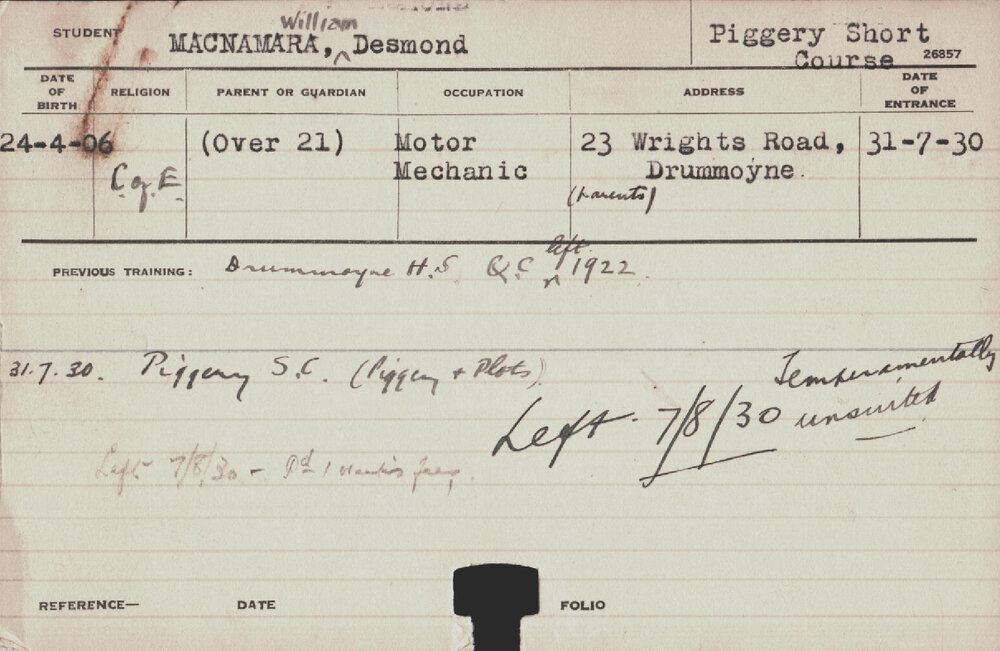 William
STUDENT MACNAMARA, Desmond Piggery Short
Course 26857
DATE OF BIRTH RELIGION PARENT OR GUARDIAN OCCUPATION ADDRESS DATE OF ENTRANCE
24-4-06 (Over 21) Motor 23 Wrights Road, 31-7-30
C. of. E. Mechanic Drummoyne.
(Parents)
left
PREVIOUS TRAINING: Drummoyne H.S. Q C 1922.
31.7.30. Piggery S.C. (Piggery + Plots)
Left 7/8/30 Temperamentally
unsuited
Left 7/8/30 - Pd 1
REFERENCE— DATE FOLIO